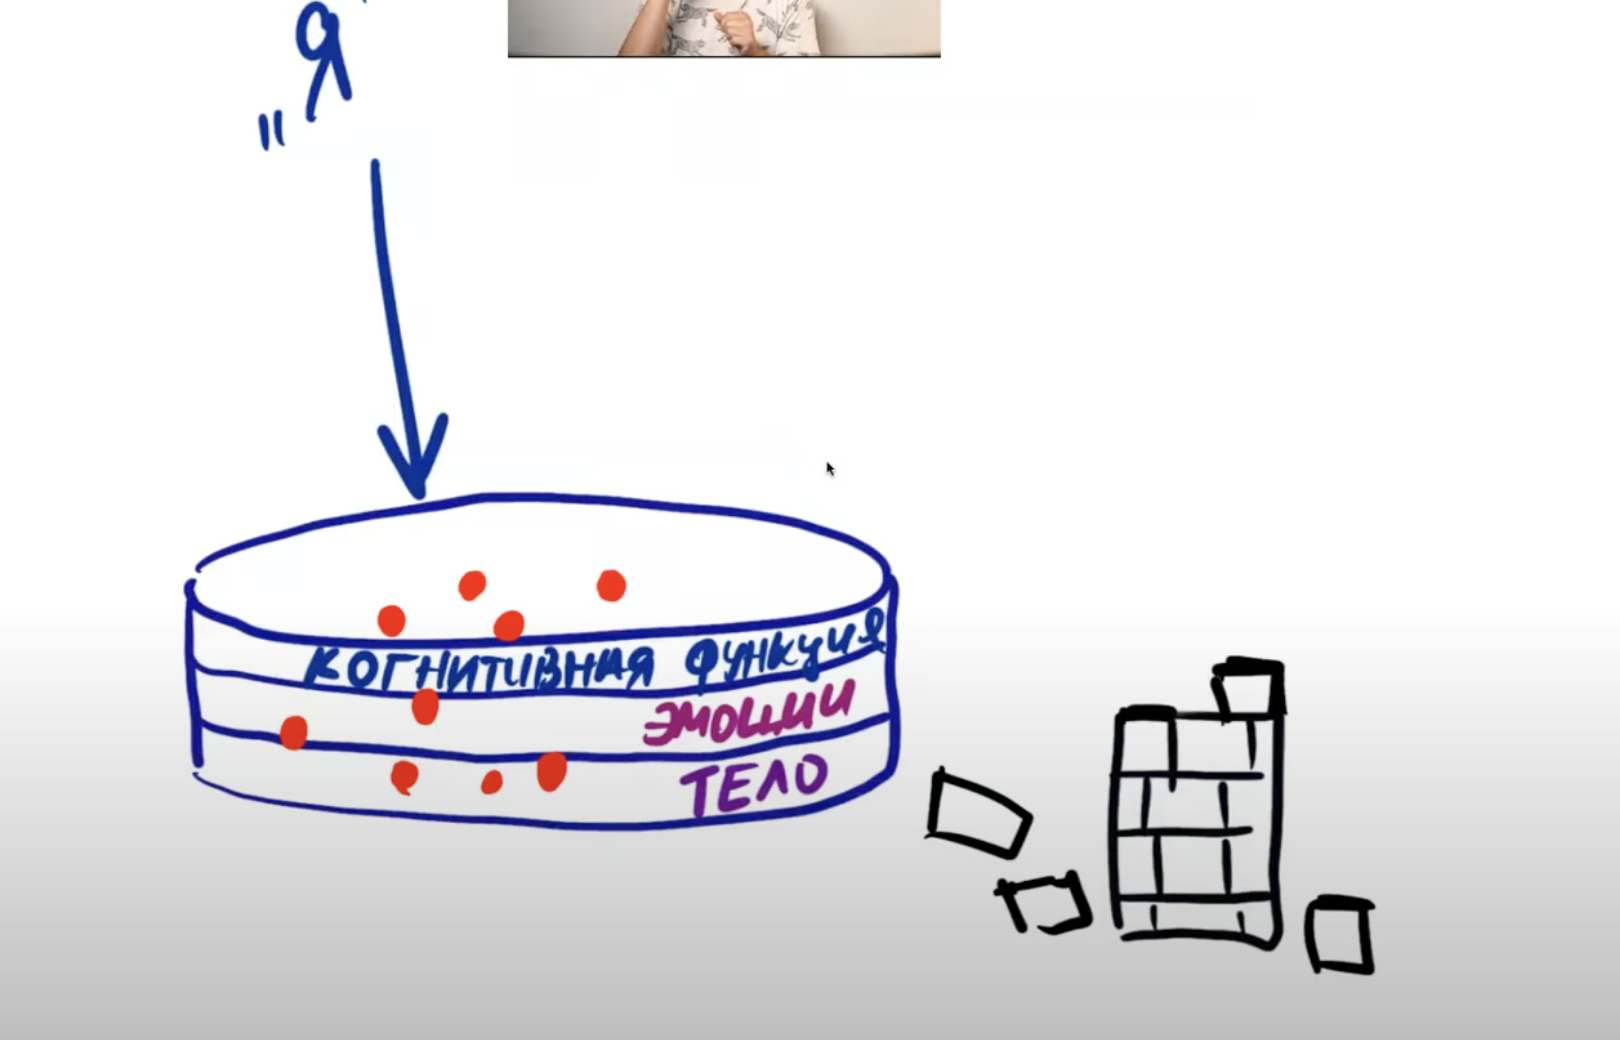 „Я"
КОГНИТИВНАЯ ФУНКЦИЯ
ЭМОЦИИ
ТЕЛО